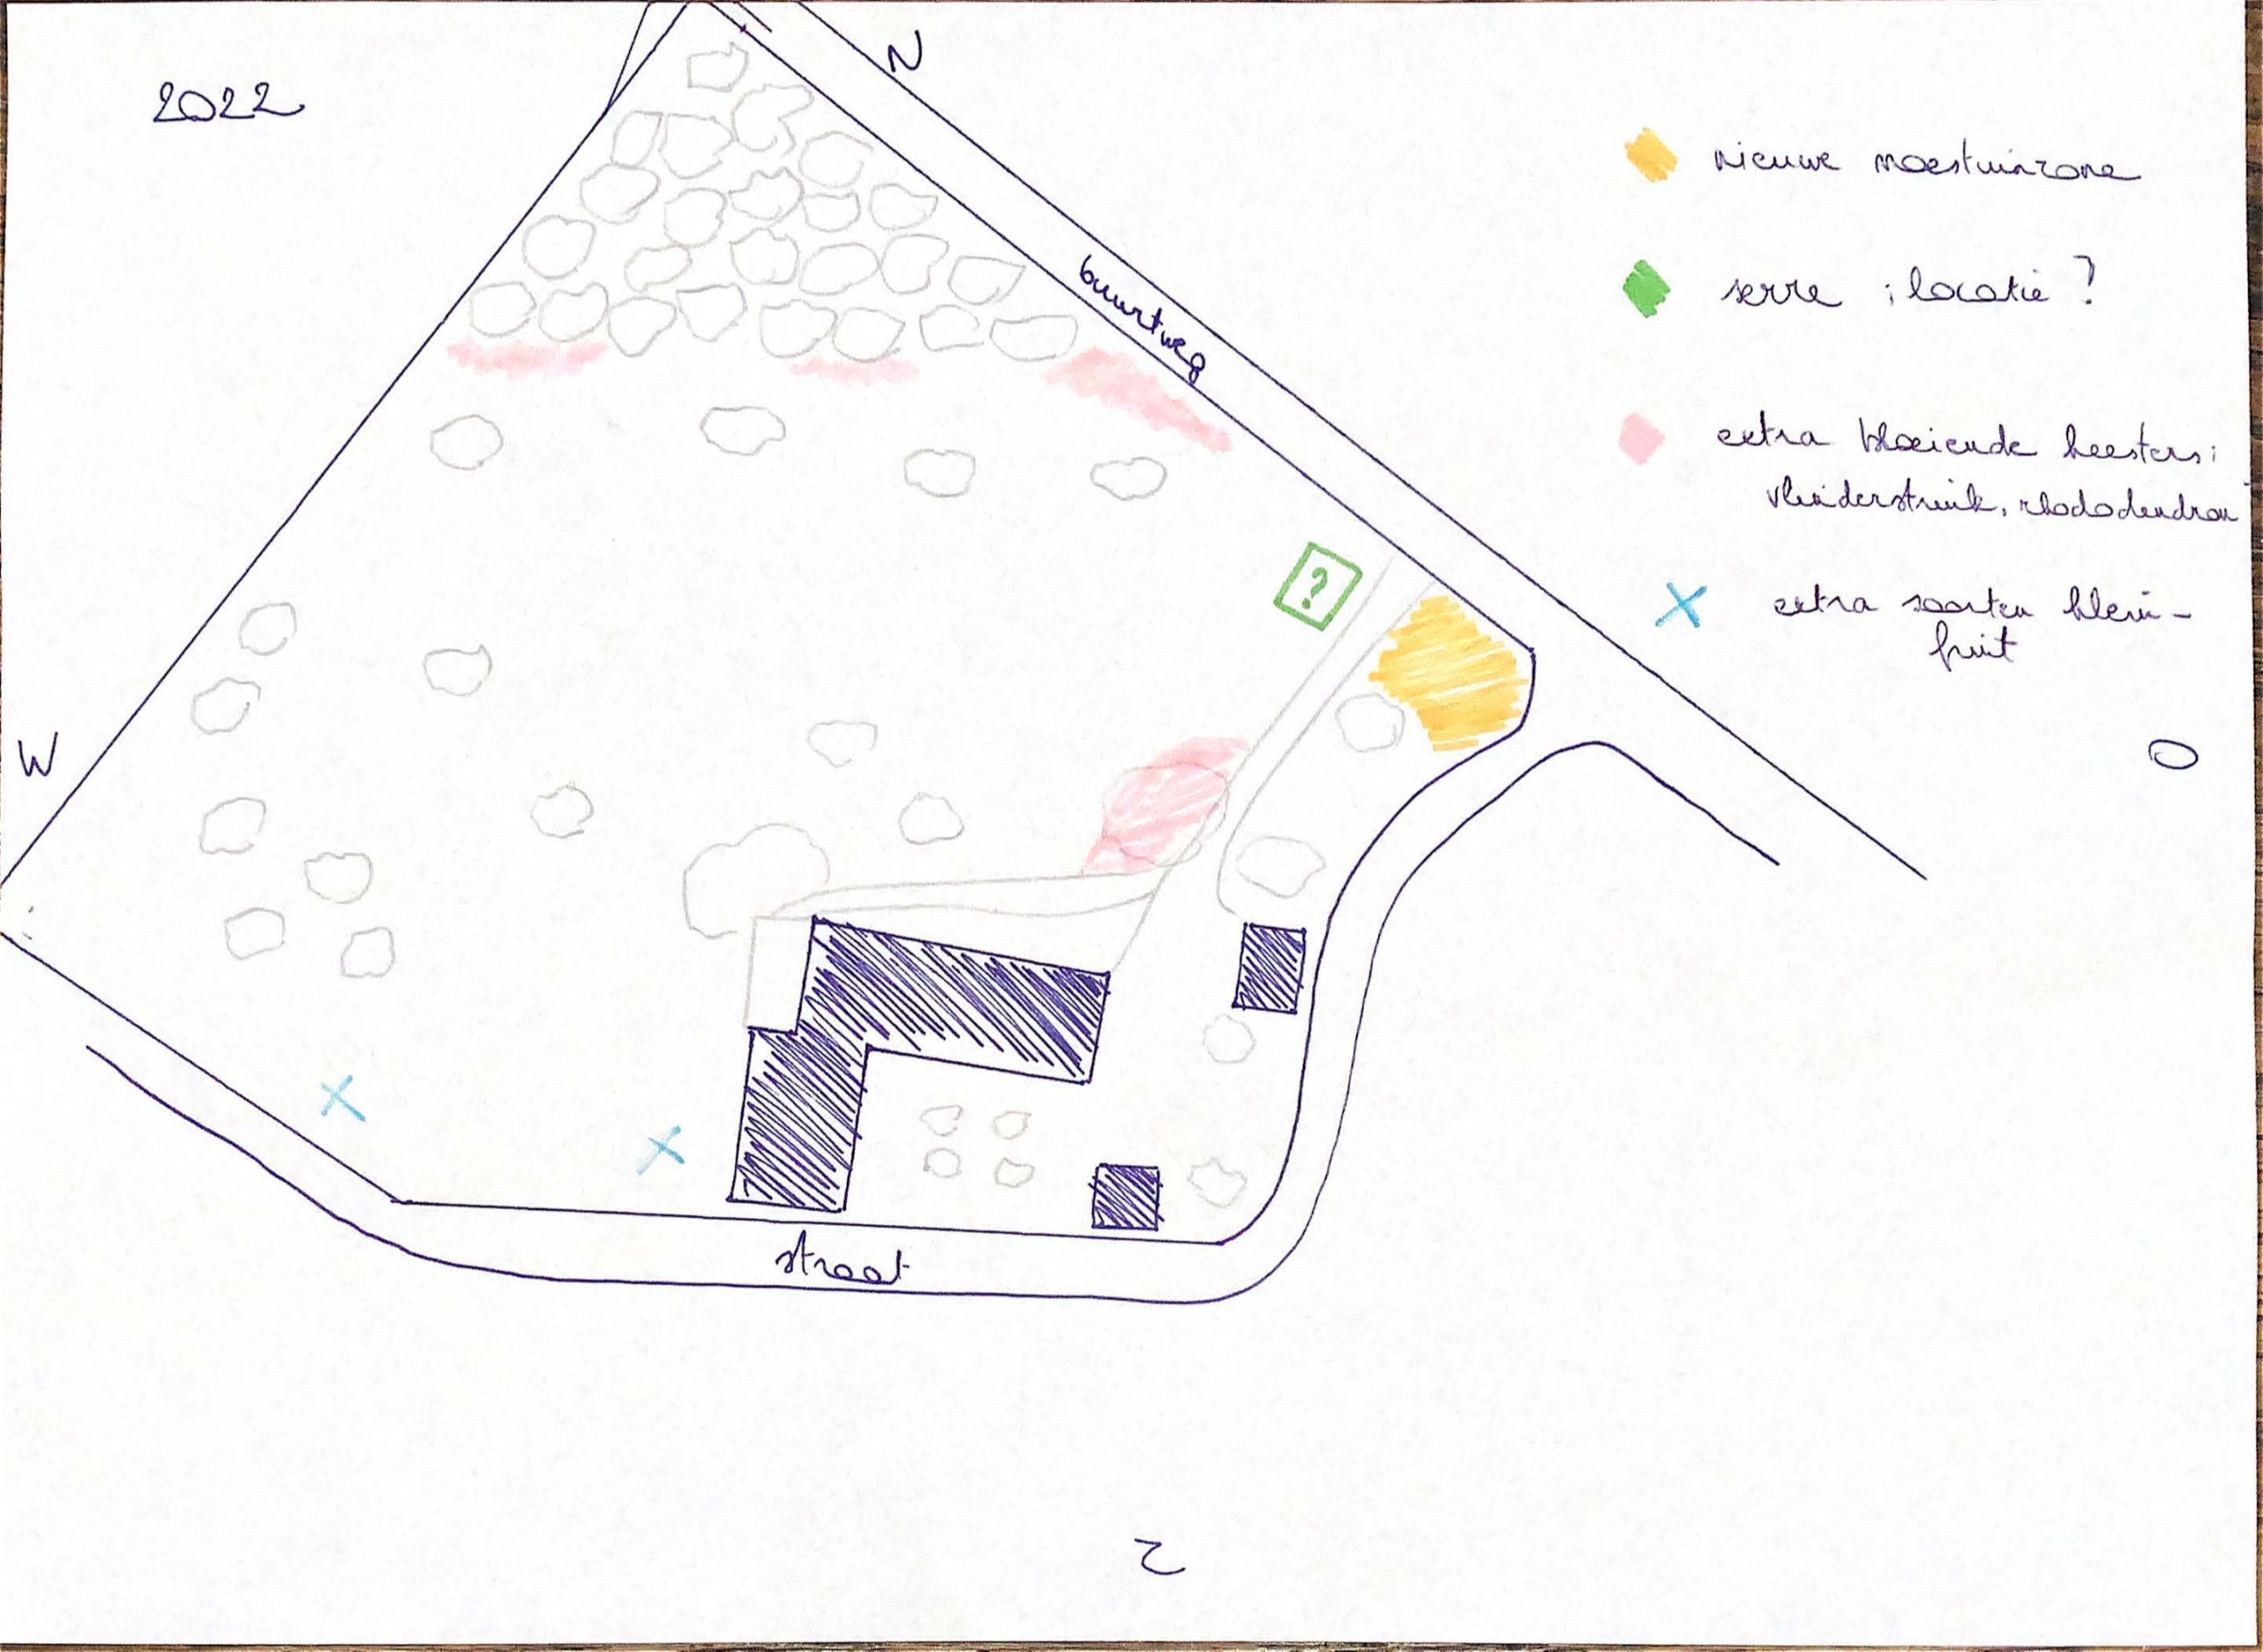 2022
N
nieuwe moestuinzone
serre ; locatie ?
buurtweg
extra bloeiende heesters:
vlinderstruik, rhododendron
?
extra soorten klein-
fruit
W
O
straat
Z